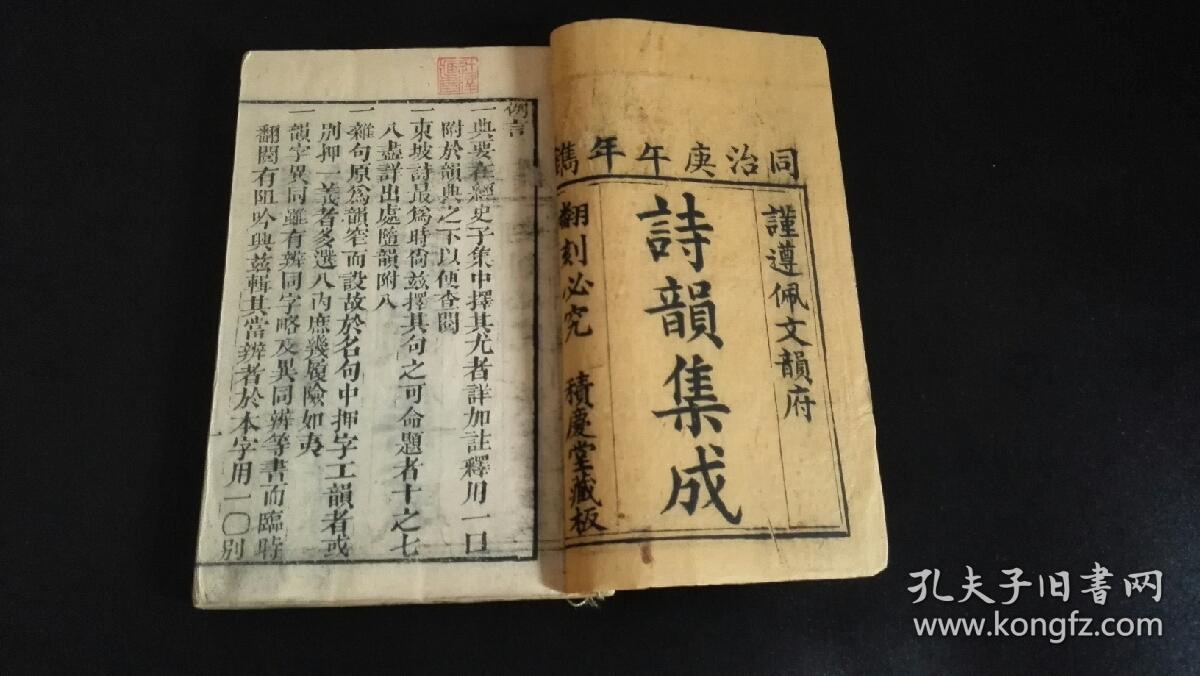 同治庚午年鐫
謹遵佩文韻府
詩韻集成
翻刻必究 積慶堂藏板
例言
一典要在經史子集中擇其尤者詳加註釋用一口
附於韻典之下以便查閱
一東坡詩最爲時尙玆擇其句之可命題者十之七
八盡詳出處隨韻附入
一雜句原爲韻窄而設故於名句中押字工韻者或
別押一義者多選入內庶幾履險如夷
一韻字異同雖有辨同字略及異同辨等書而臨時
翻閱有阻吟興玆輯其當辨者於本字用一〇別
一
孔夫子旧书网
www.kongfz.com